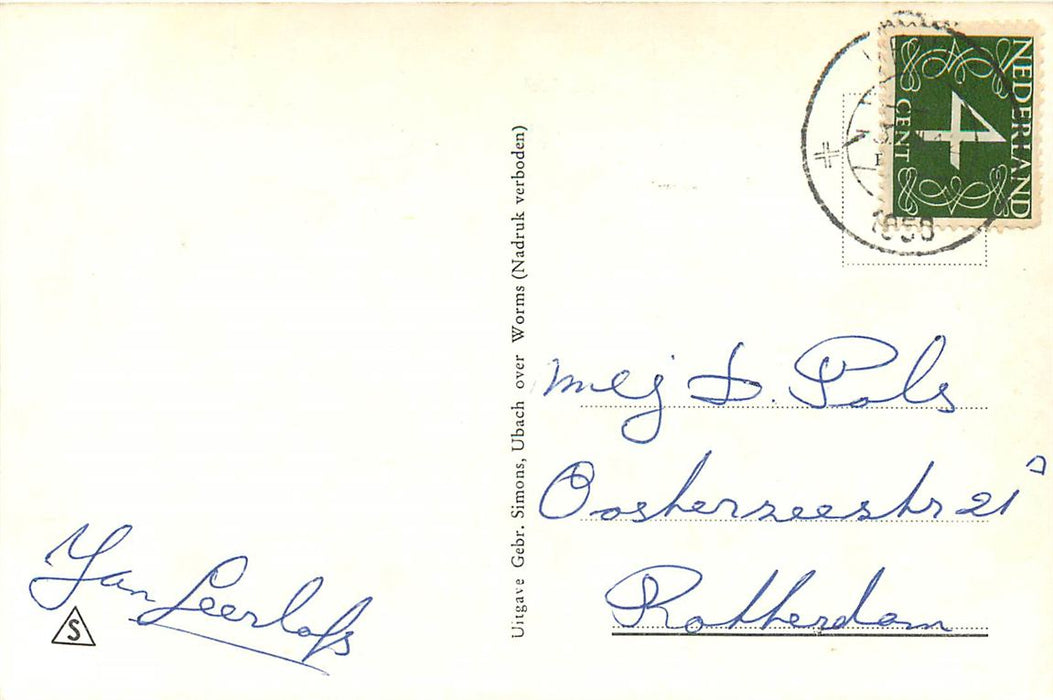 Jan Leerlofs
S
Uitgave Gebr. Simons, Ubach over Worms (Nadruk verboden)
NEDERLAND
4
CENT
1958
mej D. Pols
Oosterzeestr 21ᵃ
Rotterdam